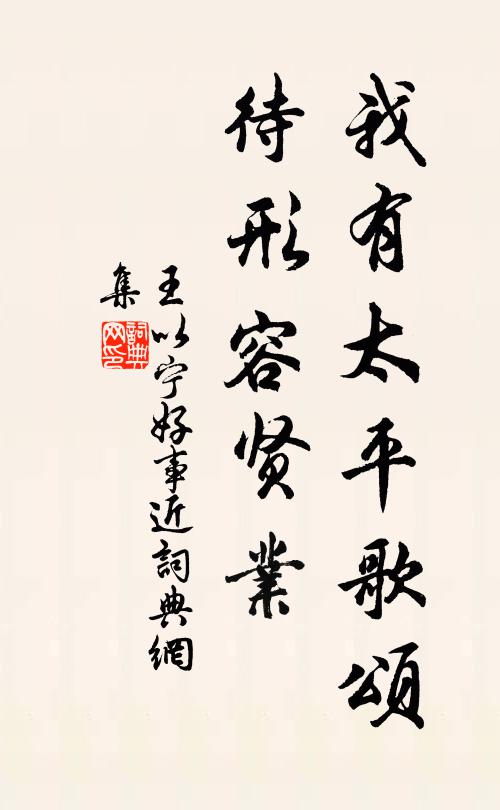 我有太平歌頌
待形容贤業
王以宁好事近詞典網
集
詞典网印